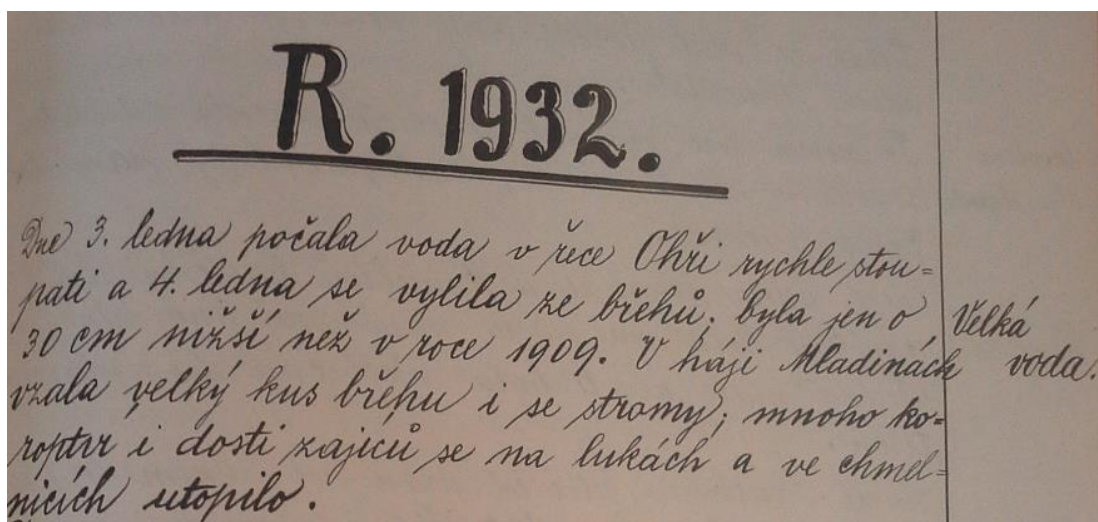 R. 1932.
Dne 3. ledna počala voda v řece Ohři rychle stou=
pati a 4. ledna se vylila ze břehů; byla jen o
30 cm nižší než v roce 1909. V háji Mladinách
vzala velký kus břehu i se stromy; mnoho ko=
roptví i dosti zajíců se na lukách a ve chmel=
nicích utopilo.
Velká
voda.